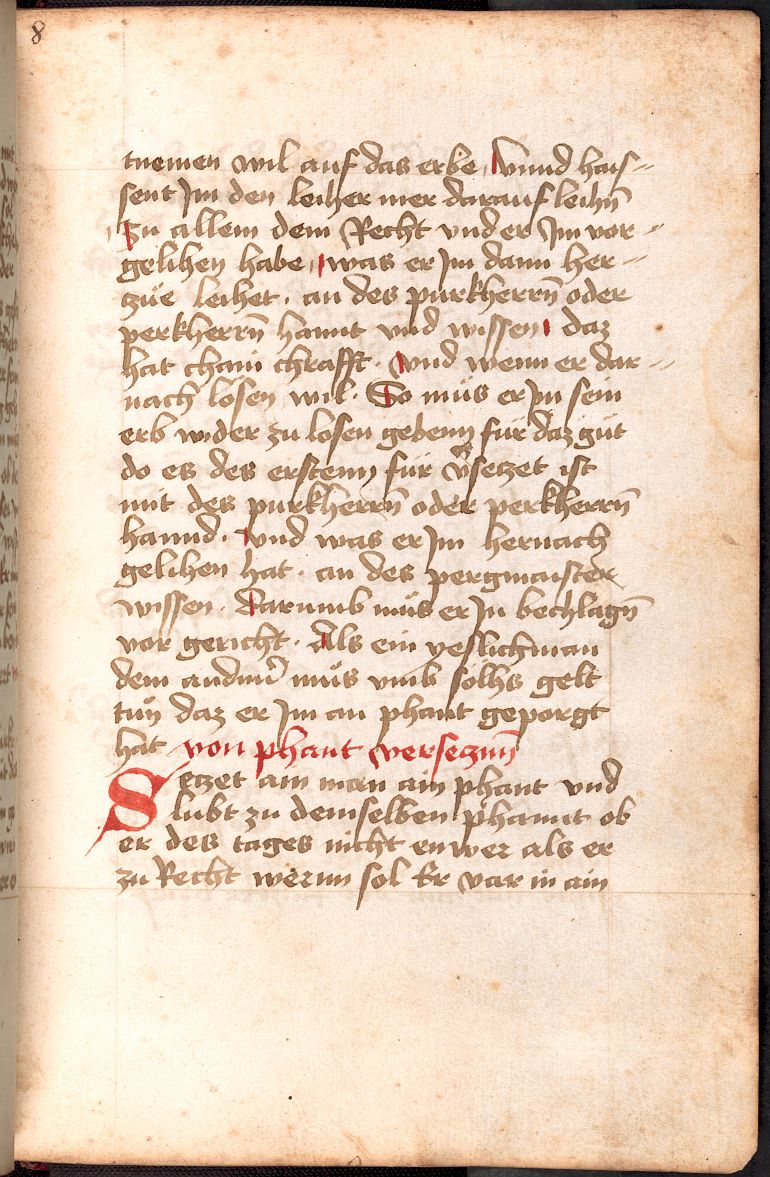 8
tnemen wil auf das erbe, Vnnd hais=
sent Im den leiher mer darauf leihn̄
Zu allem dem Recht vnd er Im vor=
gelihen habe, was er Im dann her=
zue leihet. an des purkherrn̄ oder
perkherrn̄ hannt vnd wissen daz
hat chain chrafft. Vnd wenn er dar=
nach lösen wil. So müs er In sein
erb wider zu losen gebenn für daz güt
do es des erstenn für v̄seczet ist
mit des purkherrn̄ oder perkherrn̄
hannd. Vnd was er Im hernach
gelihen hat. an des pergmaister
wissen. Darumb müs er In bechlagn̄
vor gericht. Als ein yeslichman
dem andm̄ můs vmb solhs gelt
tůn daz er Im an phant geporgt
hat von phant verseczun̄
Seczet ain man ain phant vnd
lubt zu demselben phannt ob
er des tages nicht enwer als er
zu Recht wernn sol Er var in ain